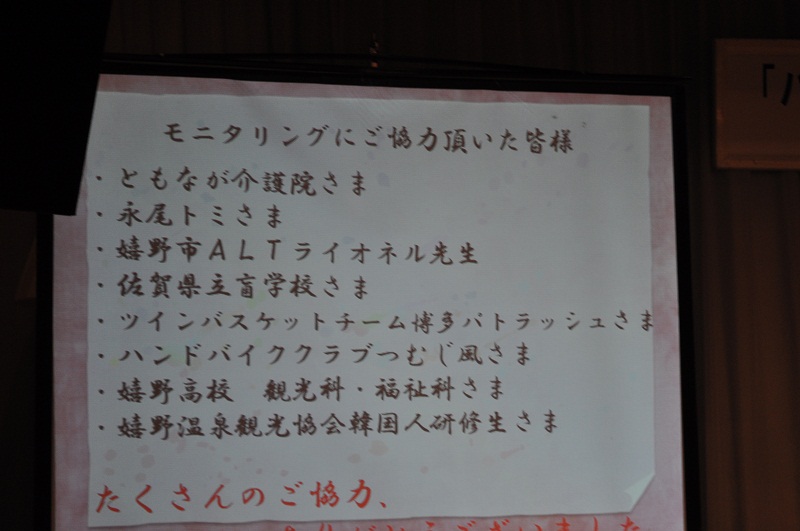 モニタリングにご協力頂いた皆様
・ともなが介護院さま
・永尾トミさま
・嬉野市ALTライオネル先生
・佐賀県立盲学校さま
・ツインバスケットチーム博多パトラッシュさま
・ハンドバイククラブつむじ風さま
・嬉野高校　観光科・福祉科さま
・嬉野温泉観光協会韓国人研修生さま
たくさんのご協力、